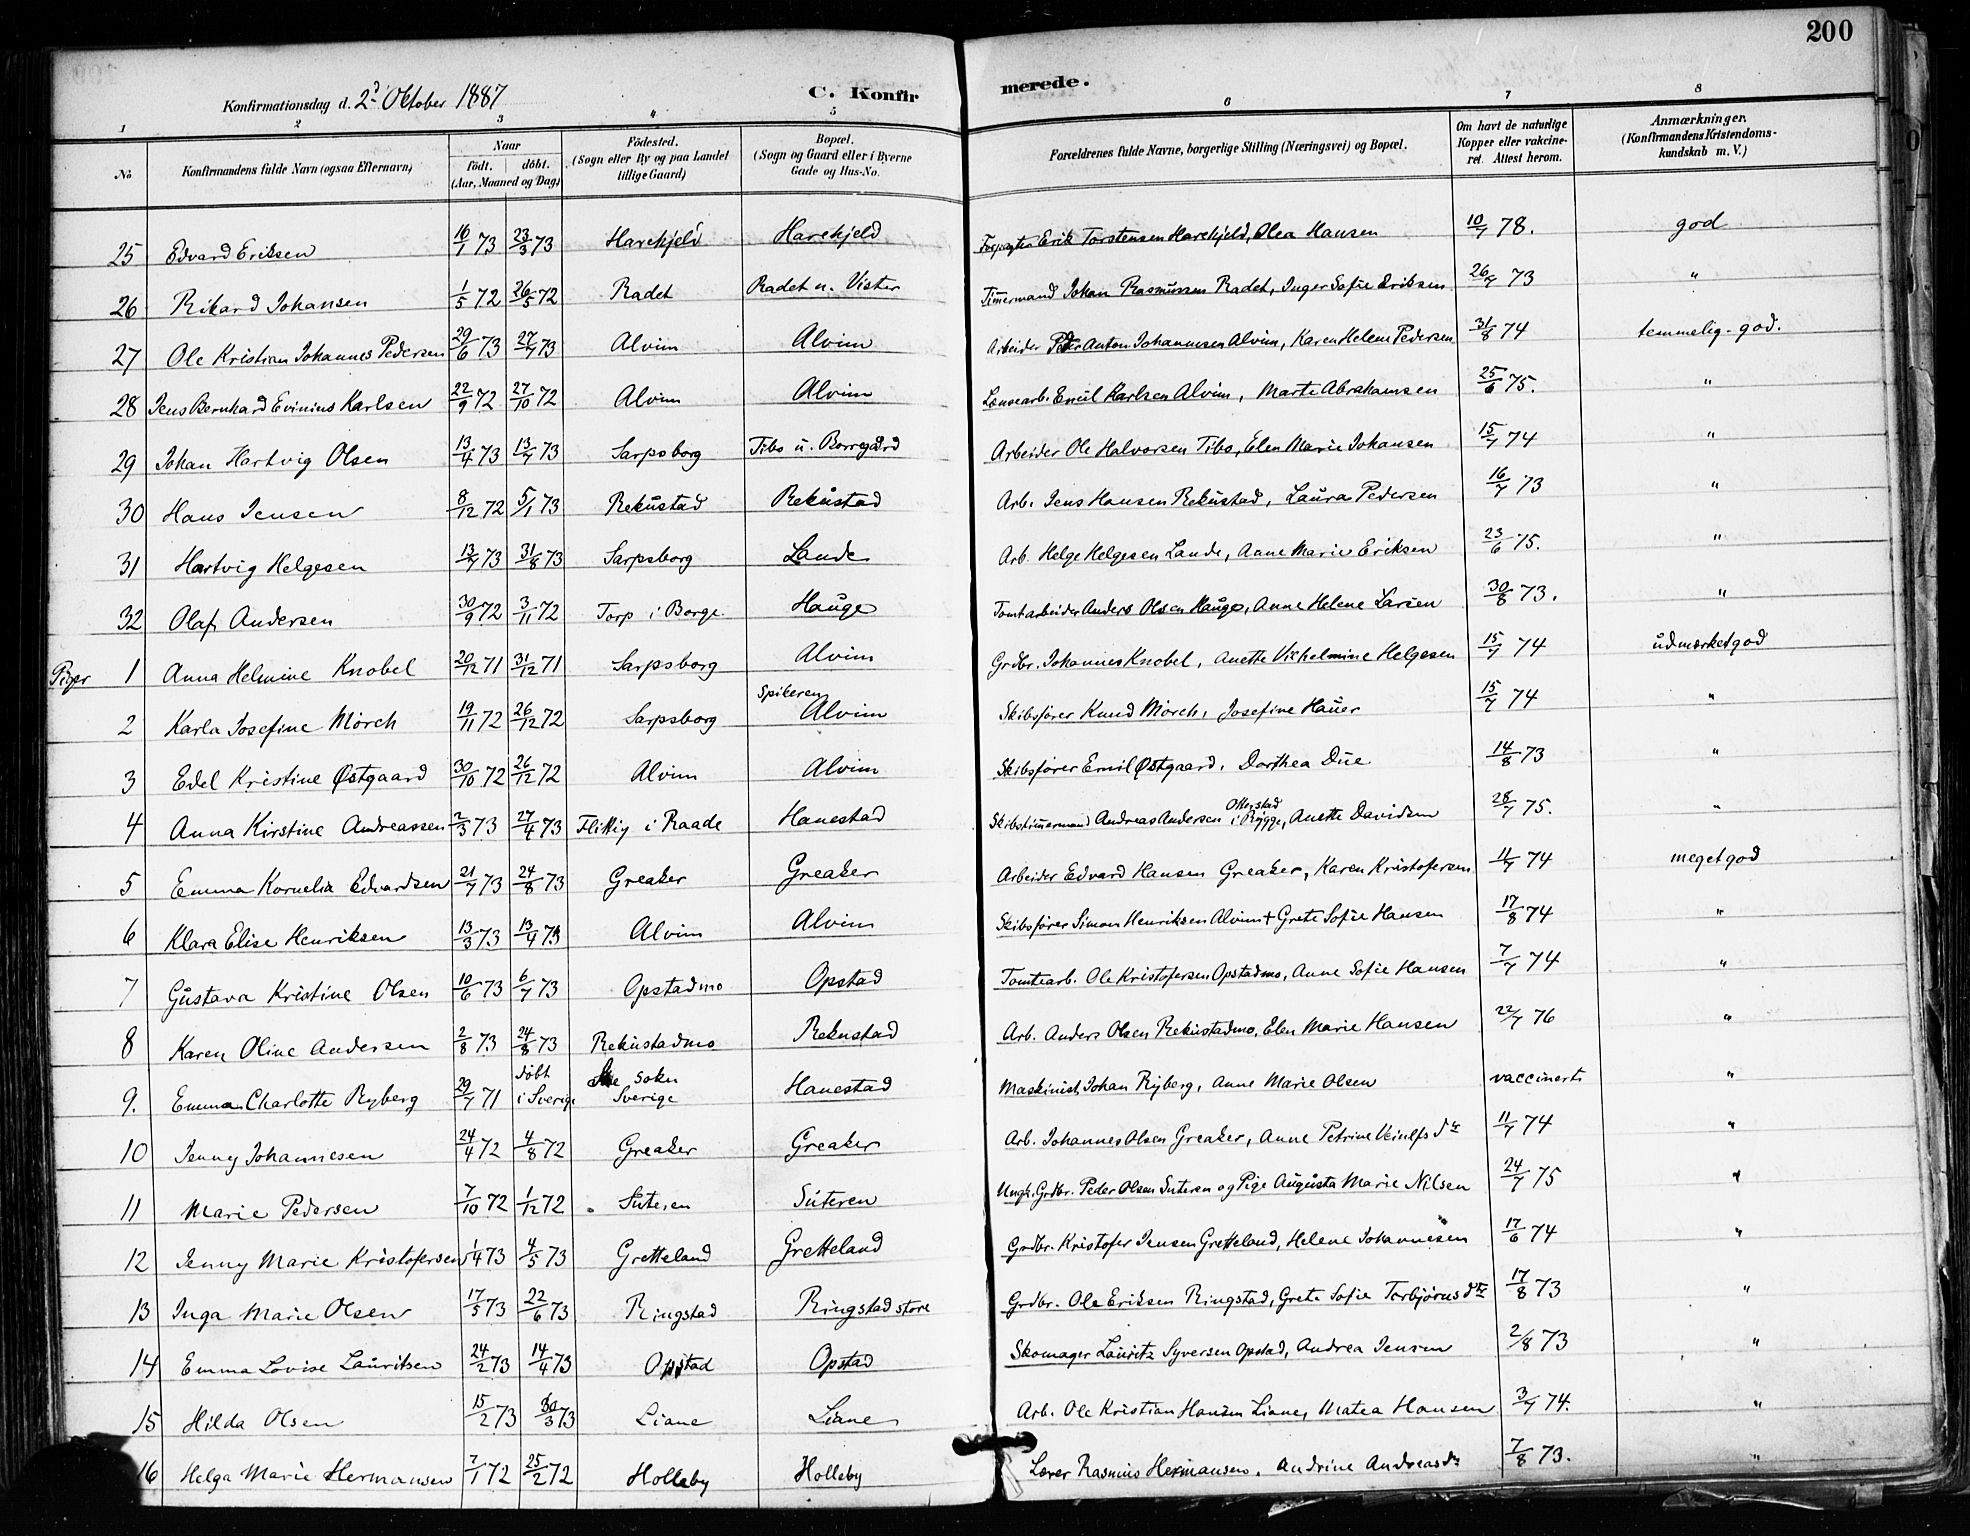 200
Konfirmationsdag d. 2? Oktober 1887 C. Konfirmerede.
1 2 3 4 5 6 7 8
No Konfirmandens fulde Navn (ogsaa Efternavn) Naar født. døbt. (Aar, Maaned og Dag) Fødested. (Sogn eller By og paa Landet tillige Gaard) Bopæl. (Sogn og Gaard eller i Byerne Gade og Hus-No. Forældrenes fulde Navne, borgerlige Stilling (Næringsvei) og Bopæl. Om havt de naturlige Kopper eller vakcineret. Attest herom. Anmærkninger. (Konfirmandens Kristendomskundskab m. V.)
25 Edvard Eriksen 16/1 73 23/3 73 Harekjeld Harekjeld Forpagter Erik Torstensen Harekjeld, Olea Hansen 10/7 78. god
26 Rikard Johansen 1/5 72 26/5 72 Radet Radet u. Vister Timermand Johan Rasmussen Radet, Inger Sofie Eriksen 26/7 73 "
27 Ole Kristian Johannes Pedersen 29/6 73 27/7 73 Alvim Alvim Arbeider Peder Anton Johannesen Alvim, Karen Helene Pedersen 31/8 74 temmelig-god.
28 Jens Bernhard Evinius Karlsen 22/9 72 27/10 72 Alvim Alvim Lænsearb. Emil Karlsen Alvim, Marte Abrahamsen 25/6 75. "
29 Johan Hartvig Olsen 13/4 73 13/7 73 Sarpsborg Tibo u. Borregård Arbeider Ole Halvorsen Tibo, Elen Marie Johansen 15/7 74 "
30 Hans Jensen 8/12 72 5/1 73 Rekustad Rekustad Arb. Jens Hansen Rekustad, Laura Pedersen 16/7 73 "
31 Hartvig Helgesen 13/7 73 31/8 73 Sarpsborg Lande Arb. Helge Helgesen Lande, Anne Marie Eriksen 23/6 75. "
32 Olaf Andersen 30/9 72 3/11 72 Torp i Borge. Hauge Tomtarbeider Anders Olsen Hauge, Anne Helene Larsen 30/8 73. "
Piger 1 Anna Helmine Knobel 20/12 71 31/12 71 Sarpsborg Alvim Grdbr. Johannes Knobel, Anette Vilhelmine Helgesen 15/7 74 udmærket god
2 Karla Josefine Mörch 19/11 72 26/12 72 Sarpsborg Spikeren Alvim Skibsfører Knud Mörch, Josefine Hauer 15/7 74 "
3 Edel Kristine Østgaard 30/10 72 26/12 72 Alvim Alvim Skibsfører Emil Østgaard, Dorthea Due 14/8 73 "
4 Anna Kirstine Andreassen 2/3 73 27/4 73 Flittig i Raade Hanestad Skibstimermand Andreas Andersen Otterstad i Rygge, Anette Davidsen 28/7 75. "
5 Emma Kornelia Edvardsen 21/7 73 24/8 73 Greaker Greaker Arbeider Edvard Hansen Greaker, Karen Kristofersen 11/7 74 meget god
6 Klara Elise Henriksen 13/3 73 13/4 73 Alvim Alvim Skibsfører Simon Henriksen Alvim + Grete Sofie Hansen 17/8 74 "
7 Gustava Kristine Olsen 10/6 73 6/7 73 Opstadmo Opstad Tomtearb. Ole Kristofersen Opstadmo, Anne Sofie Hansen 7/7 74 "
8 Karen Oline Andersen 2/8 73 24/8 73 Rekustadmo Rekustad Arb. Anders Olsen Rekustadmo, Elen Marie Hansen 22/7 76 "
9. Emma Charlotte Ryberg 29/7 71 døbt i Sverige sokn Sverige Hanestad Maskinist Johan Ryberg, Anne Marie Olsen vaccinerts "
10 Jenny Johannesen 24/4 72 4/8 72 Greaker Greaker Arb. Johannes Olsen Greaker, Anne Petrine 11/7 74 "
11 Marie Pedersen 7/10 72 1/12 72 Suteren Suteren Ungk. Grdbr. Peder Olsen Suteren og Pige Augusta Marie Nilsen 24/7 75 "
12 Jenny Marie Kristofersen 1/4 73 4/5 73 Gretteland Gretteland Grdbr. Kristofer Jensen Gretteland, Helene Johannesen 17/6 74 "
13 Inga Marie Olsen 17/5 73 22/6 73 Ringstad Ringstad store Grdbr. Ole Eriksen Ringstad, Grete Sofie Torbjørns dtr 17/8 73 "
14 Emma Lovise Lauritsen 24/2 73 14/4 73 Opstad Opstad Skomager Lauritz Syversen Opstad, Andrea Jensen 2/8 73 "
15 Hilda Olsen 15/2 73 30/3 73 Liane Liane Arb. Ole Kristian Hansen Liane, Matea Hansen 3/7 74. "
16 Helga Marie Hermansen 7/1 72 25/2 72 Holleby Holleby Lærer Rasmus Hermansen, Andrine Andreasdr 7/8 73. "